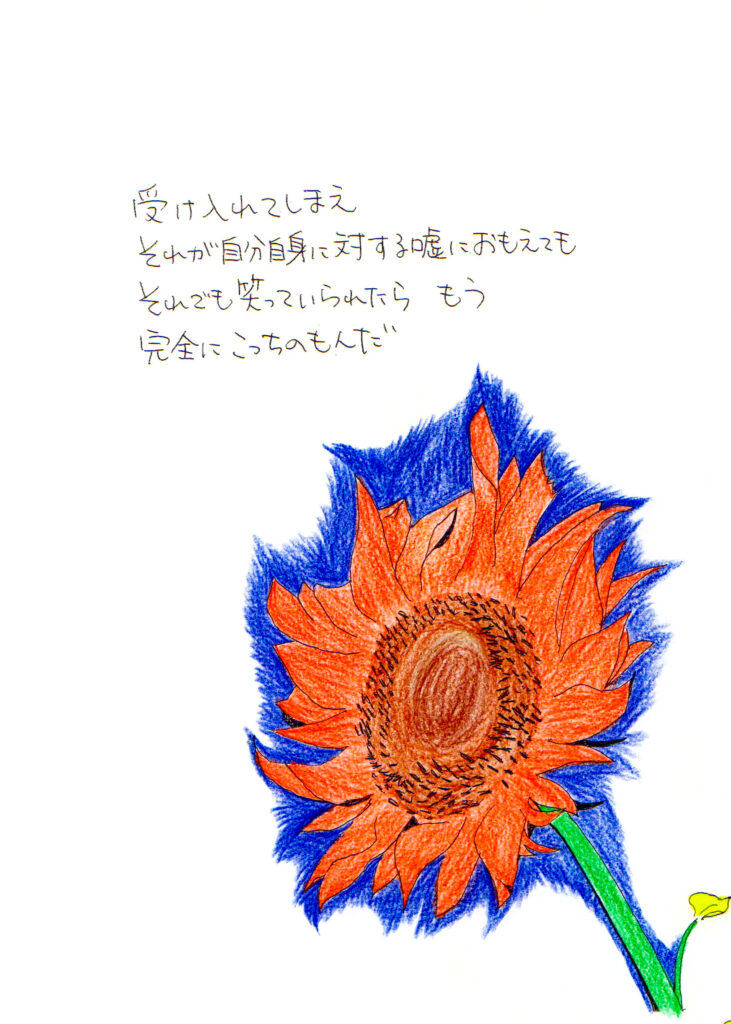 受け入れてしまえ
それが自分自身に対する嘘におもえても
それでも笑っていられたら もう
完全にこっちのもんだ